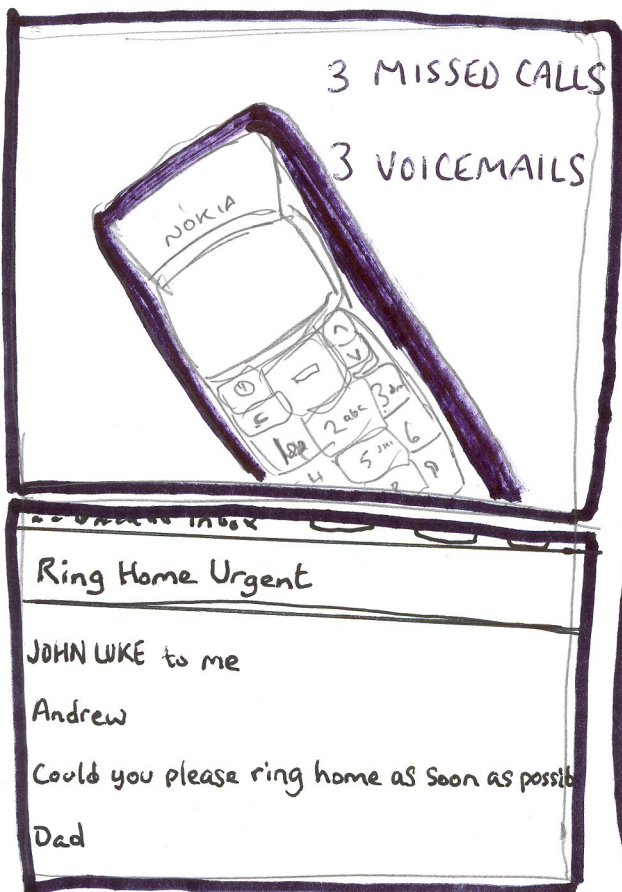 3 MISSED CALLS
3 VOICEMAILS
NOKIA
2 abc
3
5
6
4
9
INBOX
Ring Home Urgent
JOHN LUKE to me
Andrew
Could you please ring home as soon as possib
Dad